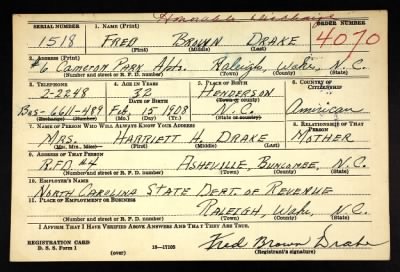 Honorable Discharge
SERIAL NUMBER 1. NAME (Print) ORDER NUMBER
1518 FRED BROWN DRAKE 4070
(First) (Middle) (Last)
2. ADDRESS (Print)
#6 Cameron Park Apts. Raleigh, Wake, N.C.
(Number and street or R. F. D. number) (Town) (County) (State)
3. TELEPHONE 4. AGE IN YEARS 5. PLACE OF BIRTH 6. COUNTRY OF CITIZENSHIP
2-2248 32 HENDERSON
DATE OF BIRTH (Town or county)
Bus-6611-489 Feb. 15-1908 N.C. American
(Exchange) (Number) (Mo.) (Day) (Yr.) (State or country)
7. NAME OF PERSON WHO WILL ALWAYS KNOW YOUR ADDRESS 8. RELATIONSHIP OF THAT PERSON
MRS. HARRIETT H. DRAKE MOTHER
(Mr., Mrs., Miss) (First) (Middle) (Last)
9. ADDRESS OF THAT PERSON
R.F.D. #4 ASHEVILLE, BUNCOMBE, N.C.
(Number and street or R. F. D. number) (Town) (County) (State)
10. EMPLOYER'S NAME
NORTH CAROLINA STATE DEPT. OF REVENUE
11. PLACE OF EMPLOYMENT OR BUSINESS
RALEIGH, Wake, N.C.
(Number and street or R. F. D. number) (Town) (County) (State)
I AFFIRM THAT I HAVE VERIFIED ABOVE ANSWERS AND THAT THEY ARE TRUE.
REGISTRATION CARD
D. S. S. Form 1 (over) 16-17105 Fred Brown Drake
(Registrant's signature)